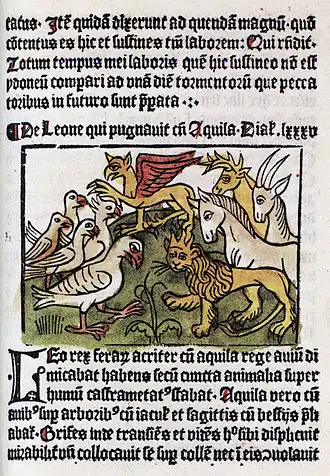 tatus. Itē quidā dixerunt ad quendā magnū. quō
cōtentus es hic et sustines tm̄ laborem: Qui rn̄dit.
Totum tempus mei laboris quē hic sustineo nō est
ydoneū compari ad vnā diē tormentorū que pecca
toribus in futuro sunt p̄pata.
De Leone qui pugnauit cū Aquila. Dial. lxxxv
LEo rex feraꝝ acriter cū aquila rege auiū di
micabat habens secū cuncta animalia super
humū castrametat stabat. Aquila vero cū
auibꝰ suꝑ arboribꝰ cū iacul̄ et sagittis cū bestijs p̄li
abat. Grifes inde transiēs et vidēs hoc sibi displicuit
mirabiliter vn̄ collocauit se suꝑ collē nec ī eis uolauit